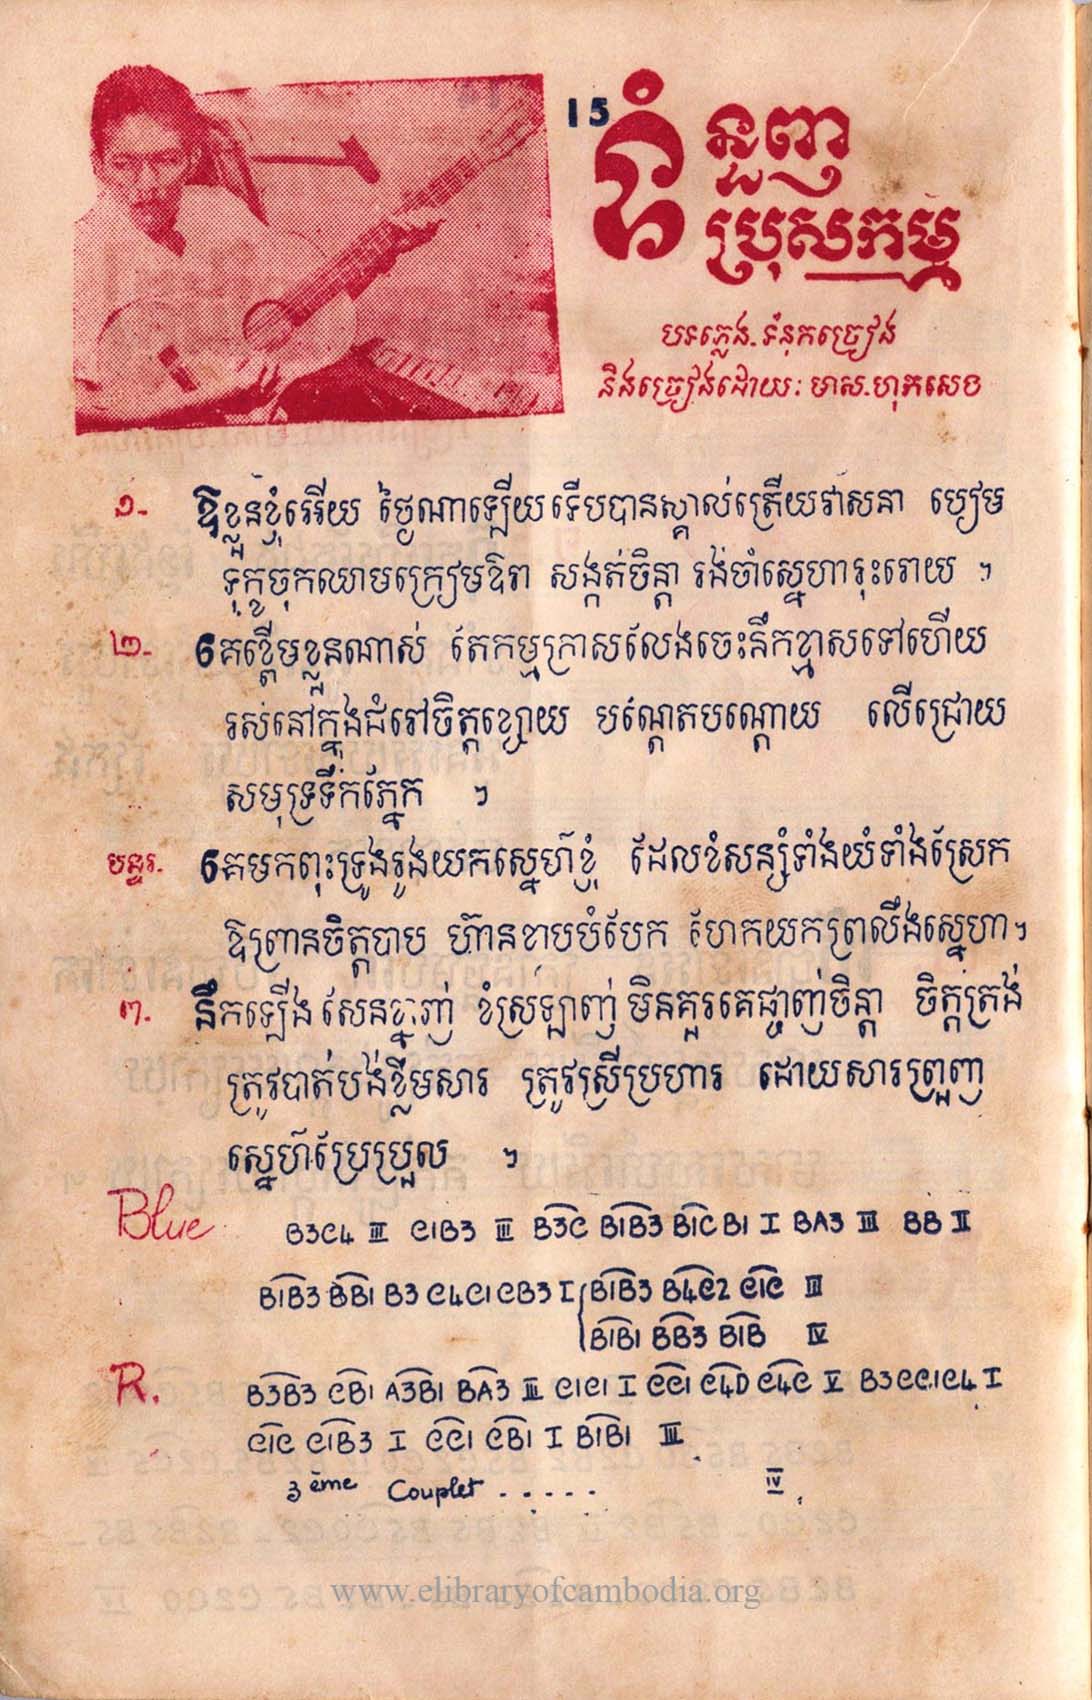 15
ទំនួញ
ប្រុសកម្ម
បទភ្លេង.ទំនុកច្រៀង
និងច្រៀងដោយ: មាស.ហុកសេង
១- ឱខ្លួនខ្ញុំអើយ ថ្ងៃណាឡើយទើបបានស្គាល់ត្រើយវាសនា បៀម
ទុក្ខចុកឈាមក្រៀមឱរា សង្កត់ចិន្តា រង់ចាំស្នេហារុះរោយ ។
២- គេខ្ពើមខ្លួនណាស់ តែកម្មក្រាសលែងចេះនឹកខ្មាសទៅហើយ
រស់នៅក្នុងជំរៅចិត្តខ្សោយ បណ្តែតបណ្តោយ លើជ្រោយ
សមុទ្រទឹកភ្នែក ។
បន្ទរ. គេមកពុះទ្រូងរូងយកស្នេហ៍ខ្ញុំ ដែលខំសន្សំទាំងយំទាំងស្រែក
ឱព្រានចិត្តបាប ហ៊ានខាបបំបែក ហែកយកព្រលឹងស្នេហា។
៣. នឹកឡើង សែនខ្នាញ់ ខំស្រឡាញ់ មិនគួរគេផ្ចាញ់ចិន្តា ចិត្តត្រង់
ត្រូវបាត់បង់ខ្លឹមសារ ត្រូវស្រីប្រហារ ដោយសារព្រួញ
ស្នេហ៍ប្រែប្រួល ។
Blue B3C4 III C1B3 III B3C B1B3 B1C B1 I BA3 III BB II
B1B3 BB1 B3 C4C1CB3 I B1B3 B4C2 C1C III
B1B1 BB3 B1B IV
R. B3B3 CB1 A3B1 BA3 III C1C1 I CC1 C4D C4C V B3CC1C4 I
C1C C1B3 I CC1 CB1 I B1B1 III
3ème Couplet ..... IV
www.elibraryofcambodia.org